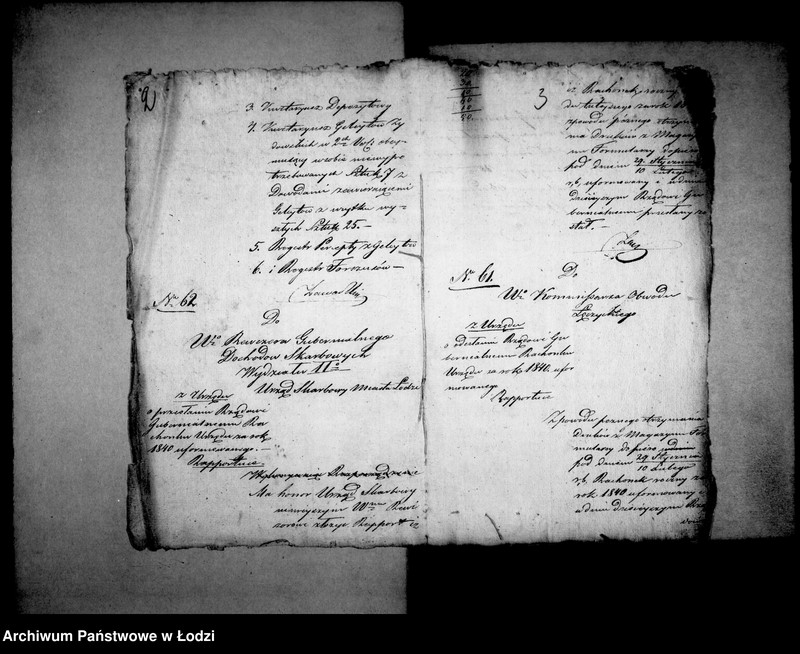 2
3. Kwitaryusz Depozytowy
4. Kwitaryusz Geleytów Ży
dowskich w 2ch Vol: obey
mujący w sobie niewypo
trzebowanych Sztuk 7 z
Dowodami zawierającemi
Geleytów z użytku wy=
szłych Sztuk 25.—
5. Regestr Percepty z Geleytów
6. i Regestr Forszusów—
No 62.
Do
Wo Rewizora Gubernialnego
Dochodów Skarbowych
Wydziału IIo
Urząd Skarbowy Miasta Łodzi
z Urzędu
o przesłaniu Rządowi
Gubernialnemu Ra
chunku Urzędu za rok
1840 uformowanego.—
Rapportuie
Wykonywając Rozporządzenie
Ma honor Urząd Skarbowy
ninieyszym Wmu Rewi
zorowi złożyć Rapport iż
3
iż Rachunek roczny
du tuteyszego za rok 18
z powodu późnego otrzym
nia Druków z Magazy
nu Formularzy dopiero
pod dniem 29 Stycznia
10 Lutego
r.b. uformowany i w dniu
dzisieyszym Rządowi Gu
bernialnemu przesłany zo
stał.—
No 61.
Do
Wo Kommissarza Obwodu
Łęczyckiego
z Urzędu
o odesłaniu Rządowi Gu
bernialnemu Rachunku
Urzędu za rok 1840. ufor
mowanego
Rapportuie
Z powodu późnego otrzymania
Druków z Magazynu For
mularzy dopiero
pod dniem 29 Stycznia
10 Lutego
r.b. Rachunek roczny za
rok 1840 uformowany i
w dniu dzisieyszym Rzą
dowi
Archiwum Państwowe w Łodzi